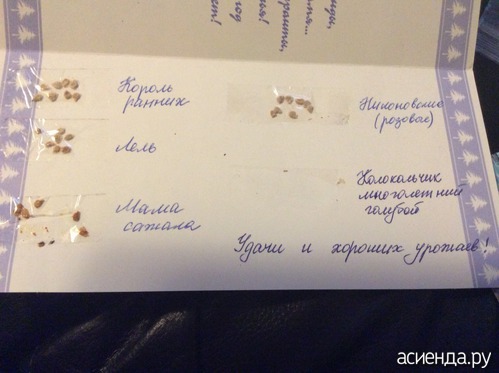 Король
ранних
Лель
Мама
сажала
(розовое)
Колокольчик
многолетний
голубой
Удачи и хороших урожаев!
асиенда.ру